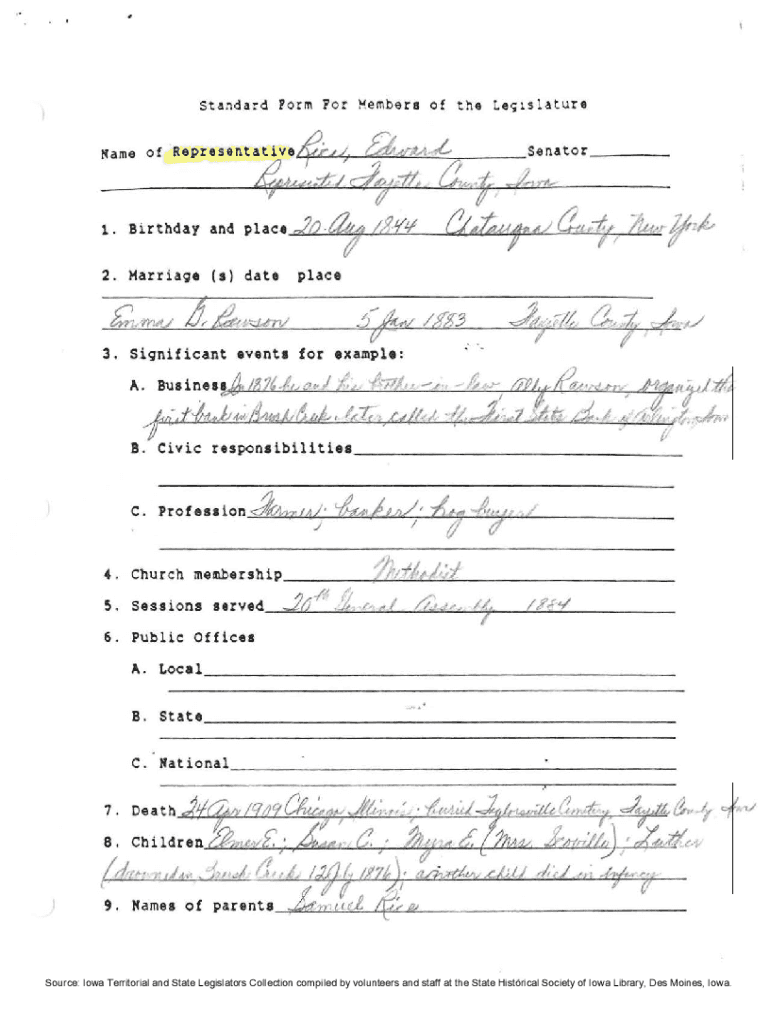 Standard Form For Members of the Legislature
Name of Representative Rice, Edward Senator
Represented Fayette County, Iowa
1. Birthday and place 20 Aug 1844 Chatauqua County, New York
2. Marriage (s) date place
Emma G. Rawson 5 Jan 1883 Fayette County, Iowa
3. Significant events for example:
A. Business In 1876 he and his brother-in-law, Rawson, organized the
first bank in Brush Creek later called the First State Bank of Arlington Iowa
B. Civic responsibilities
C. Profession Farmer; banker; hog buyer
4. Church membership Methodist
5. Sessions served 20th General Assembly 1884
6. Public Offices
A. Local
B. State
C. National
7. Death 24 Apr 1909 Chicago, Illinois; buried Taylorsville Cemetery, Fayette County Iowa
8. Children Elmer E.; Susan C.; Myra E. (Mrs. Scoville); Luther
(drowned in Brush Creek 12 July 1876); another child died in infancy
9. Names of parents Samuel Rice
Source: Iowa Territorial and State Legislators Collection compiled by volunteers and staff at the State Historical Society of Iowa Library, Des Moines, Iowa.